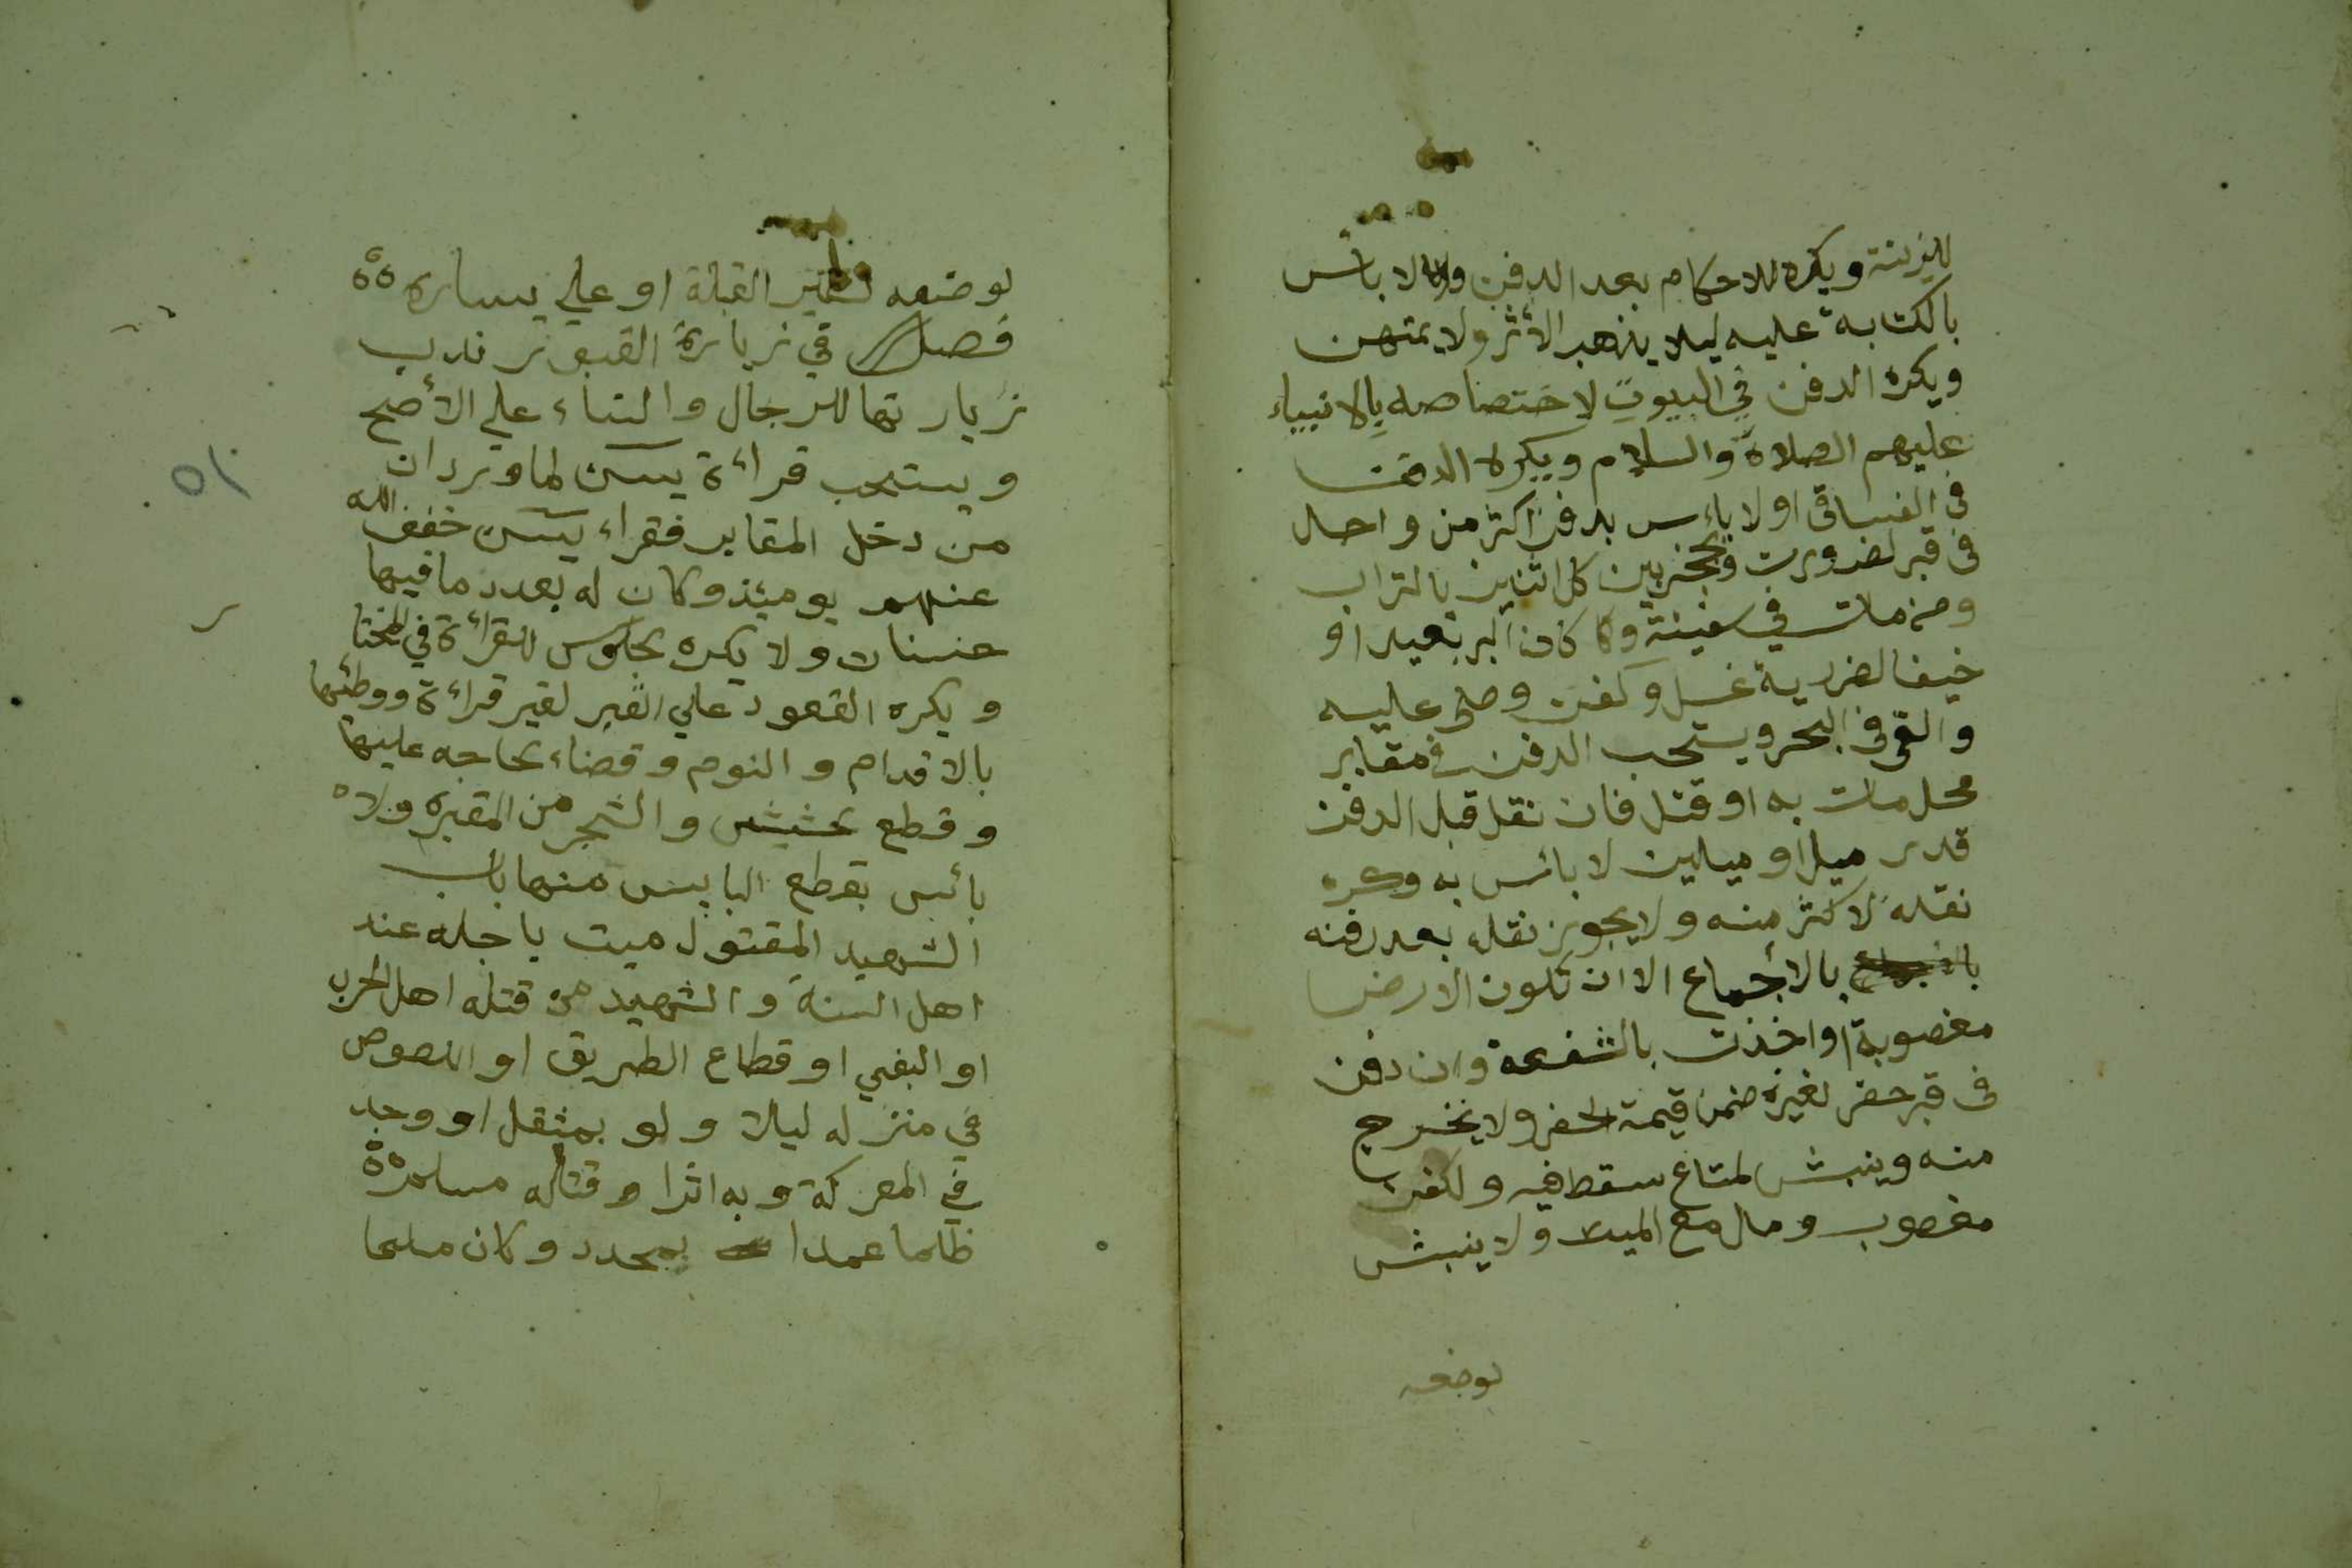 للزينة ويكره للاحكام بعد الدفن ولا لا باس
بالكتابة عليه ليلا يذهب الأثر ولا يمتهن
ويكره الدفن في البيوت لاختصاصه بالانبياء
عليهم الصلاة والسلام ويكره الدفن
في الفساقي او لا بأس بدفن اكثر من واحد
في قبر لضرورت ويحجز بين كل اثنين بالتراب
ومن مات في سفينة وكان البر بعيد او
خيف الضرر به غسل وكفن وصلى عليه
والقى في البحر ويستحب الدفن في مقابر
محل مات به او قتل فان نقل قبل الدفن
قدر ميل او ميلين لا بائس به وكره
نقله لاكثر منه ولا يجوز نقله بعد دفنه
بالاجماع الا ان تكون الارض
مغصوبة او اخذت بالشفعة وان دفن
في قبر حفر لغيره ضمن قيمة الحفر ولا يخرج
منه وينبش لمتاع سقط فيه ولكفن
مغصوب ومال مع الميت ولا ينبش
بوضعه
بوضعه لغير القبلة او على يساره
فصل في زيارة القبور ندب
زيارتها للرجال والنساء على الأصح
ويستحب قراءة يسن لما ورد ان
من دخل المقابر فقراء يسن خفف الله
عنهم يومئذ وكان له بعدد ما فيها
حسنات ولا يكره جلوس للقراءة في المختا
ويكره القعود علي القبر لغير قراءة ووطئها
بالاقدام والنوم وقضاء حاجه عليها
وقطع حشيش والشجر من المقبره ولا
بائس بقطع اليابس منها باب
الشهيد المقتول ميت باجله عند
اهل السنة والشهيد من قتله اهل الحرب
او البغي او قطاع الطريق او اللصوص
في منزله ليلا ولو بمثقل او وجد
في المعركة وبه اثرا وقتله مسلم
ظلما عمدا بمحدد وكان مسلما